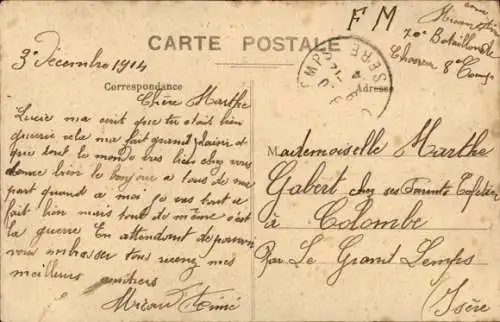 F M
70e Bataillon de
Chasseur 8e Comp
3 Décembre 1914
CARTE POSTALE
Correspondance
Adresse
ISERE
Chère Marthe
Lucie ma écrit que tu était bien
guerrie cela ma fait grand plaisir et
que tout le monde vas bien chez vous
donne bien le bonjour a tous de ma
part quand a moi je vas tout a
fait bien mais tout de même c'est
la guerre En attendant de pouvoir
vous embrasser tous recevez mes
meilleurs amitiers
Mademoiselle Marthe
Gabert chez ses Parents
à Colombe
Par Le Grand Lemps
Isère